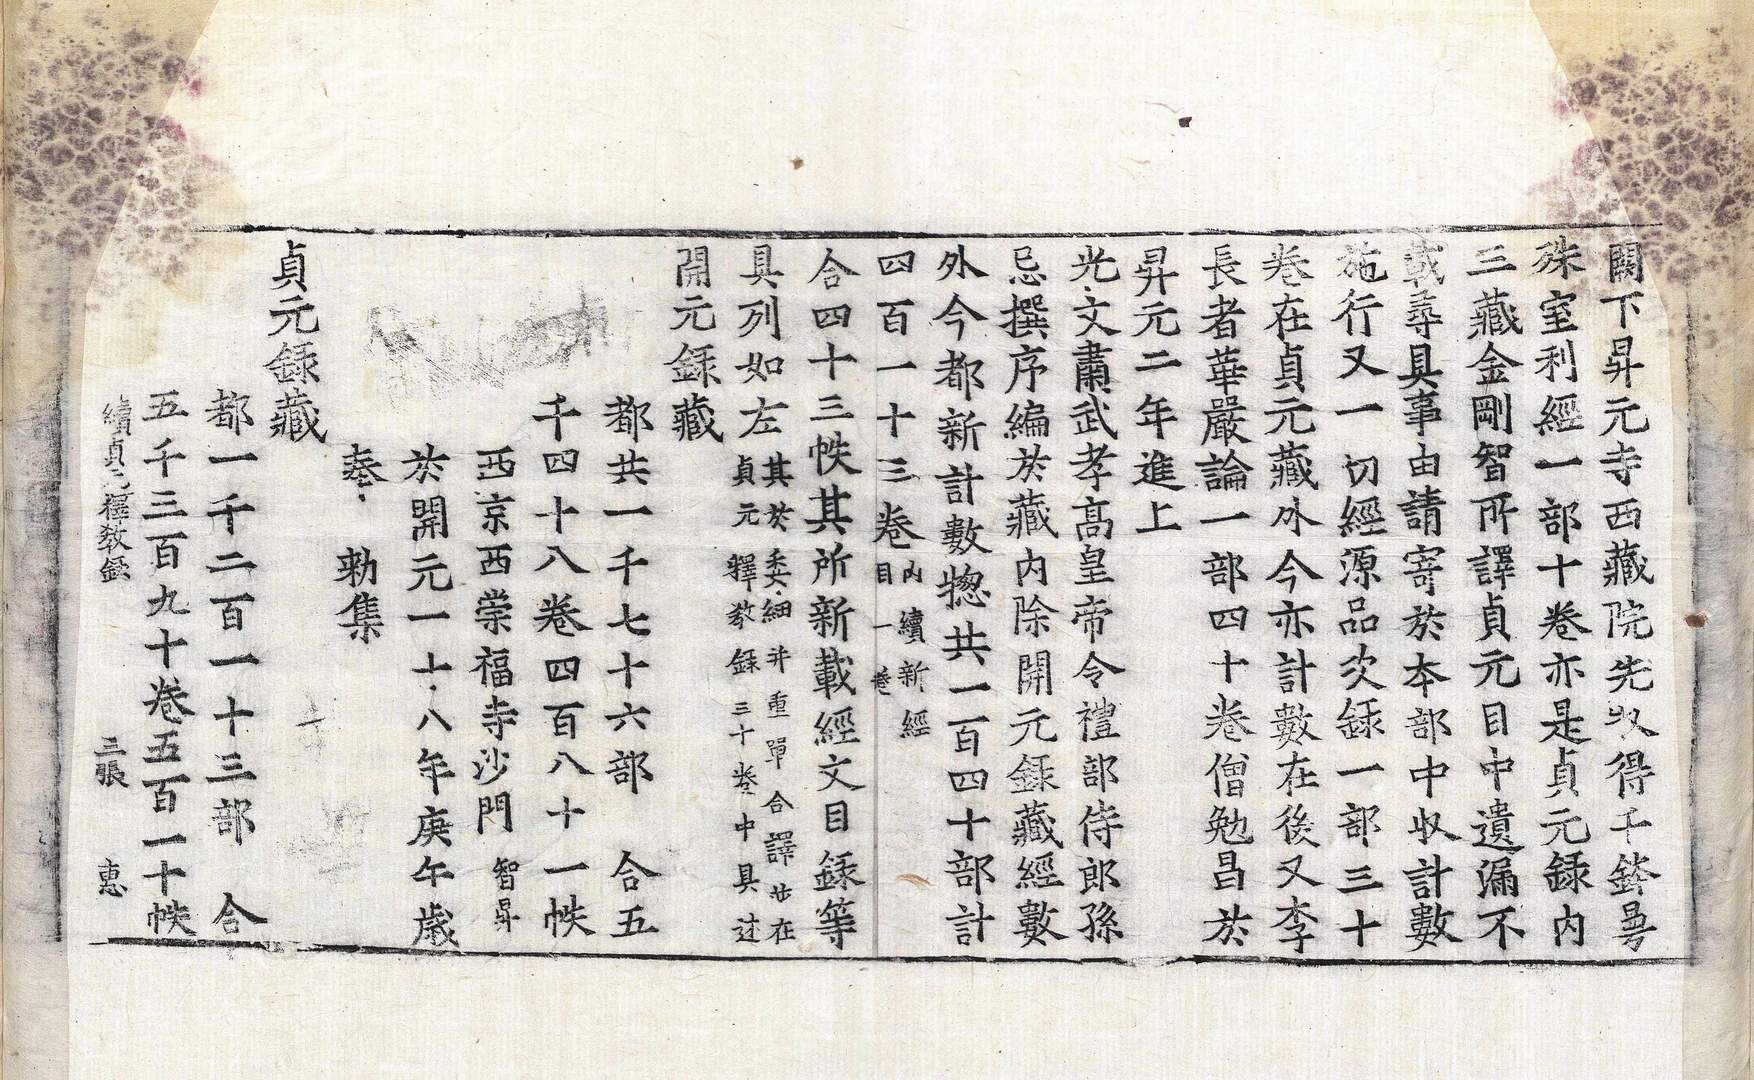 闕下昇元寺西藏院先收得千鉢曼
殊室利經一部十卷亦是貞元録内
三藏金剛智所譯貞元目中遺漏不
載尋具事由請寄於本部中收計數
施行又一切經源品次録一部三十
卷在貞元藏外今亦計數在後又李
長者華嚴論一部四十卷僧勉昌於
昇元二年進上
光文肅武孝高皇帝令禮部侍郎孫
忌撰序編於藏内除開元録藏經數
外今都新計數揔共一百四十部計
四百一十三卷内續新經目一卷
合四十三帙其所新載經文目録等
具列如左其於委細并重單合譯並在貞元釋教録三十卷中具述
開元録藏
都共一千七十六部 合五
千四十八卷四百八十一帙
西京西崇福寺沙門智昇
於開元一十八年庚午歲
奉勅集
貞元録藏
都一千二百一十三部 合
五千三百九十卷五百一十帙
續貞元釋教録 三張 惠